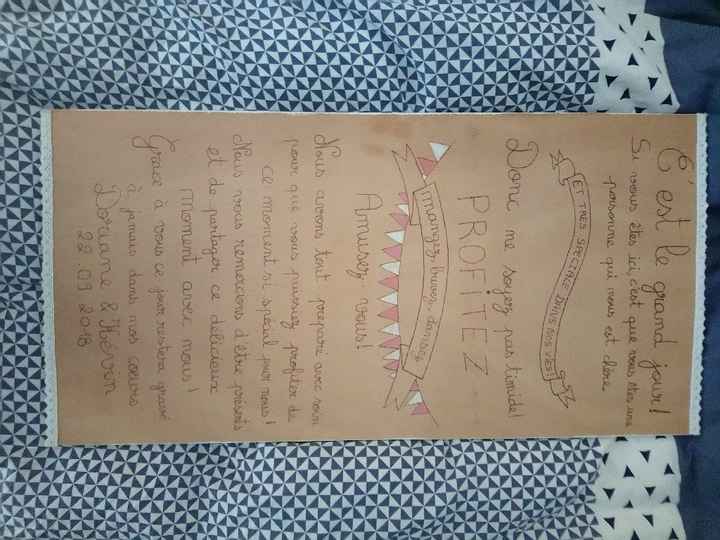 C'est le grand jour!
Si vous êtes ici, c'est que vous êtes une
personne qui nous est chère
ET TRES SPECIALE DANS NOS VIES!
Donc ne soyez pas timide!
PROFITEZ
mangez, buvez, dansez,
Amusez vous!
Nous avons tout préparé avec soin
pour que vous puissiez profiter de
ce moment si spécial pour nous!
Nous vous remercions d'être présents
et de partager ce délicieux
moment avec nous!
Grace à vous ce jour restera gravé
à jamais dans nos coeurs
Doriane & Kevin
22.09.2018